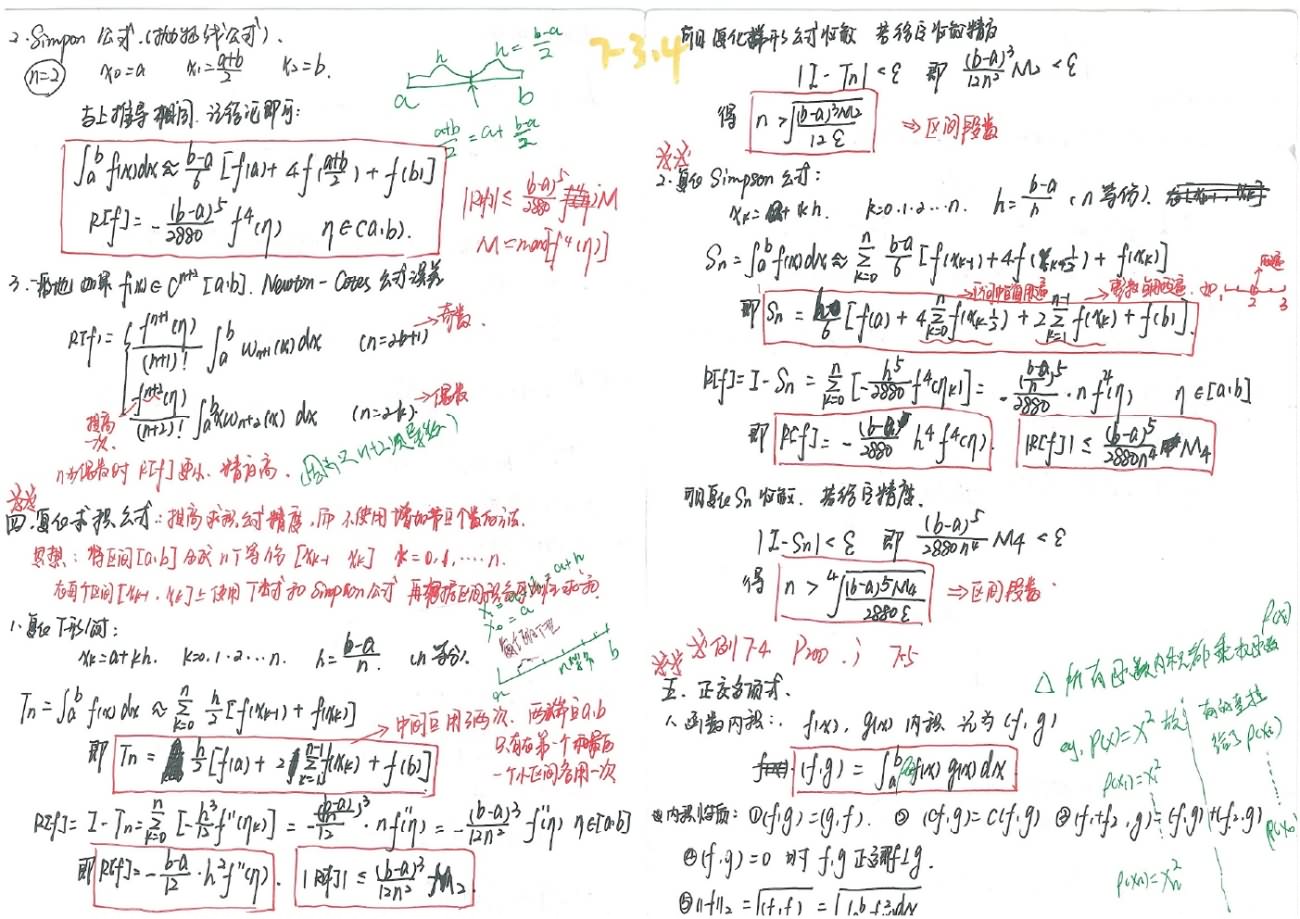 2. Simpson 公式.(抛物线公式).
n=2 x₀=a x₁=\frac{a+b}{2} x₂=b.
h h=\frac{b-a}{2}
a b
\frac{a+b}{2}=a+\frac{b-a}{2}
与上推导相同. 记结论即可:
∫_a^b f(x)dx≈\frac{b-a}{6}[f(a)+4f(\frac{a+b}{2})+f(b)]
R[f]=-\frac{(b-a)^5}{2880}f^4(η) η∈(a,b).
|R[f]|≤\frac{(b-a)^5}{2880}M
M=max[f^4(η)]
3. 一般地 如果 f(x)∈C^{n+2}[a,b]. Newton-Cotes 公式误差
R[f]={\frac{f^{n+1}(η)}{(n+1)!}∫_a^b ω_{n+1}(x)dx (n=2k+1) →奇数.
\frac{f^{n+2}(η)}{(n+2)!}∫_a^b xω_{n+2}(x)dx (n=2k). →偶数
提高一次.
n为偶数时 R[f]更小. 精度高. (因为又n+2次导数)
四. 复化求积公式: 提高求积公式精度, 而不使用增加节点个数的方法.
思想: 将区间[a,b]分成n个等份[x_{k-1} x_k] k=0,1,.....n.
在每个区间[x_{k-1}, x_k]上使用T公式和Simpson公式 再根据区间
x₁=a+h
x₀=a
n等分
a b
1. 复化T形公式:
x_k=a+kh. k=0.1.2...n. h=\frac{b-a}{n}. (n等分).
T_n=∫_a^b f(x)dx≈\sum_{k=0}^n \frac{h}{2}[f(x_{k-1})+f(x_k)]
即 T_n=\frac{h}{2}[f(a)+2\sum_{k=1}^{n-1}f(x_k)+f(b)]
→中间区用了两次. 两端点a.b
只有在第一个和最后
一个小区间各用一次
R[f]=I-T_n=\sum_{k=0}^n[-\frac{h^3}{12}f''(η_k)]=-\frac{(\frac{b-a}{n})^3}{12}·nf''(η)=-\frac{(b-a)^3}{12n^2}f''(η) η∈[a,b]
即 R[f]=-\frac{b-a}{12}·h^2f''(η). |R[f]|≤\frac{(b-a)^3}{12n^2}M₂.
7-3.4
可知复化梯形公式收敛 若给定收敛精度
|I-T_n|<ε 即 \frac{(b-a)^3}{12n^2}M₂<ε
得 n>\sqrt{\frac{(b-a)^3M₂}{12ε}} ⇒区间段数
2. 复化Simpson公式:
x_k=a+kh. k=0.1.2...n. h=\frac{b-a}{n} (n等份).
S_n=∫_a^b f(x)dx≈\sum_{k=0}^n \frac{b-a}{6}[f(x_{k-1})+4f(x_{k-\frac{1}{2}})+f(x_k)]
→区间中值用1遍 →离散点用两遍. 如. 1 2 3 两遍
即 S_n=\frac{h}{6}[f(a)+4\sum_{k=0}^n f(x_{k-\frac{1}{2}})+2\sum_{k=1}^{n-1}f(x_k)+f(b)].
R[f]=I-S_n=\sum_{k=0}^n[-\frac{h^5}{2880}f^4(η_k)]=-\frac{(\frac{b-a}{n})^5}{2880}·nf^4(η) η∈[a,b]
即 R[f]=-\frac{(b-a)}{2880}h^4f^4(η). |R[f]|≤\frac{(b-a)^5}{2880n^4}M₄
可知复化S_n收敛. 若给定精度.
|I-S_n|<ε 即 \frac{(b-a)^5}{2880n^4}M₄<ε
得 n>\sqrt[4]{\frac{(b-a)^5M₄}{2880ε}} ⇒区间段数.
例7-4 P200 ; 7-5
五. 正交多项式.
△ 所有函数内积都乘权函数 P(x)
1. 函数内积: f(x), g(x) 内积 记为 (f,g)
(f,g)=∫_a^b f(x)g(x)dx
eg, P(x)=x² 故;
P(x₁)=x₁²
P(x_n)=x_n²
有的直接
给了P(x₁)
P(x_n)
内积性质: ①(f,g)=(g,f). ②(cf,g)=c(f,g) ③(f₁+f₂,g)=(f₁,g)+(f₂,g)
④(f,g)=0 时 f,g正交即f⊥g.
⑤||f||₂=\sqrt{(f,f)}=\sqrt{∫_a^b f²dx}